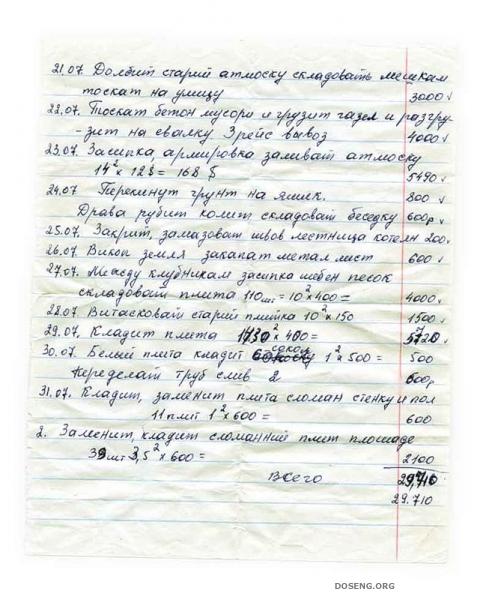 21.07. Долбит старий атмоску складовать мешкам
тоскат на улицу 3000
22.07. Тоскат бетон мусори и грузит газел и разгру-
-зит на свалку 3 рейс вывоз 4000
23.07. Засипка, армировка заливат атмоску
14² х 12$ = 168 $ 5490
24.07 Перекинут грунт на ямик. 800
Драва рубит колит складоват беседку 600р
25.07. Закрит, замазоват швов лестница котелн 200
26.07. Викоп земля закапат метал лист 600
27.07. Между клубникам засипка шебен песок
складоват плита 110 шт = 10² х 400 = 4000
28.07. Витасковат старий плитка 10² х 150 1500
29.07. Кладит плита х 400 =
30.07. Белый плита кладит цокол 1² х 500 = 500
переделат труб слив 2 600р
31.07. Кладит, заменит плита сломан стенку и пол
11 плит 1² х 600 = 600
2. Заменит, кладит сломанний плит площаде
39 шт 3,5² х 600 = 2100
Всего 29.710
29.710
DOSENG.ORG